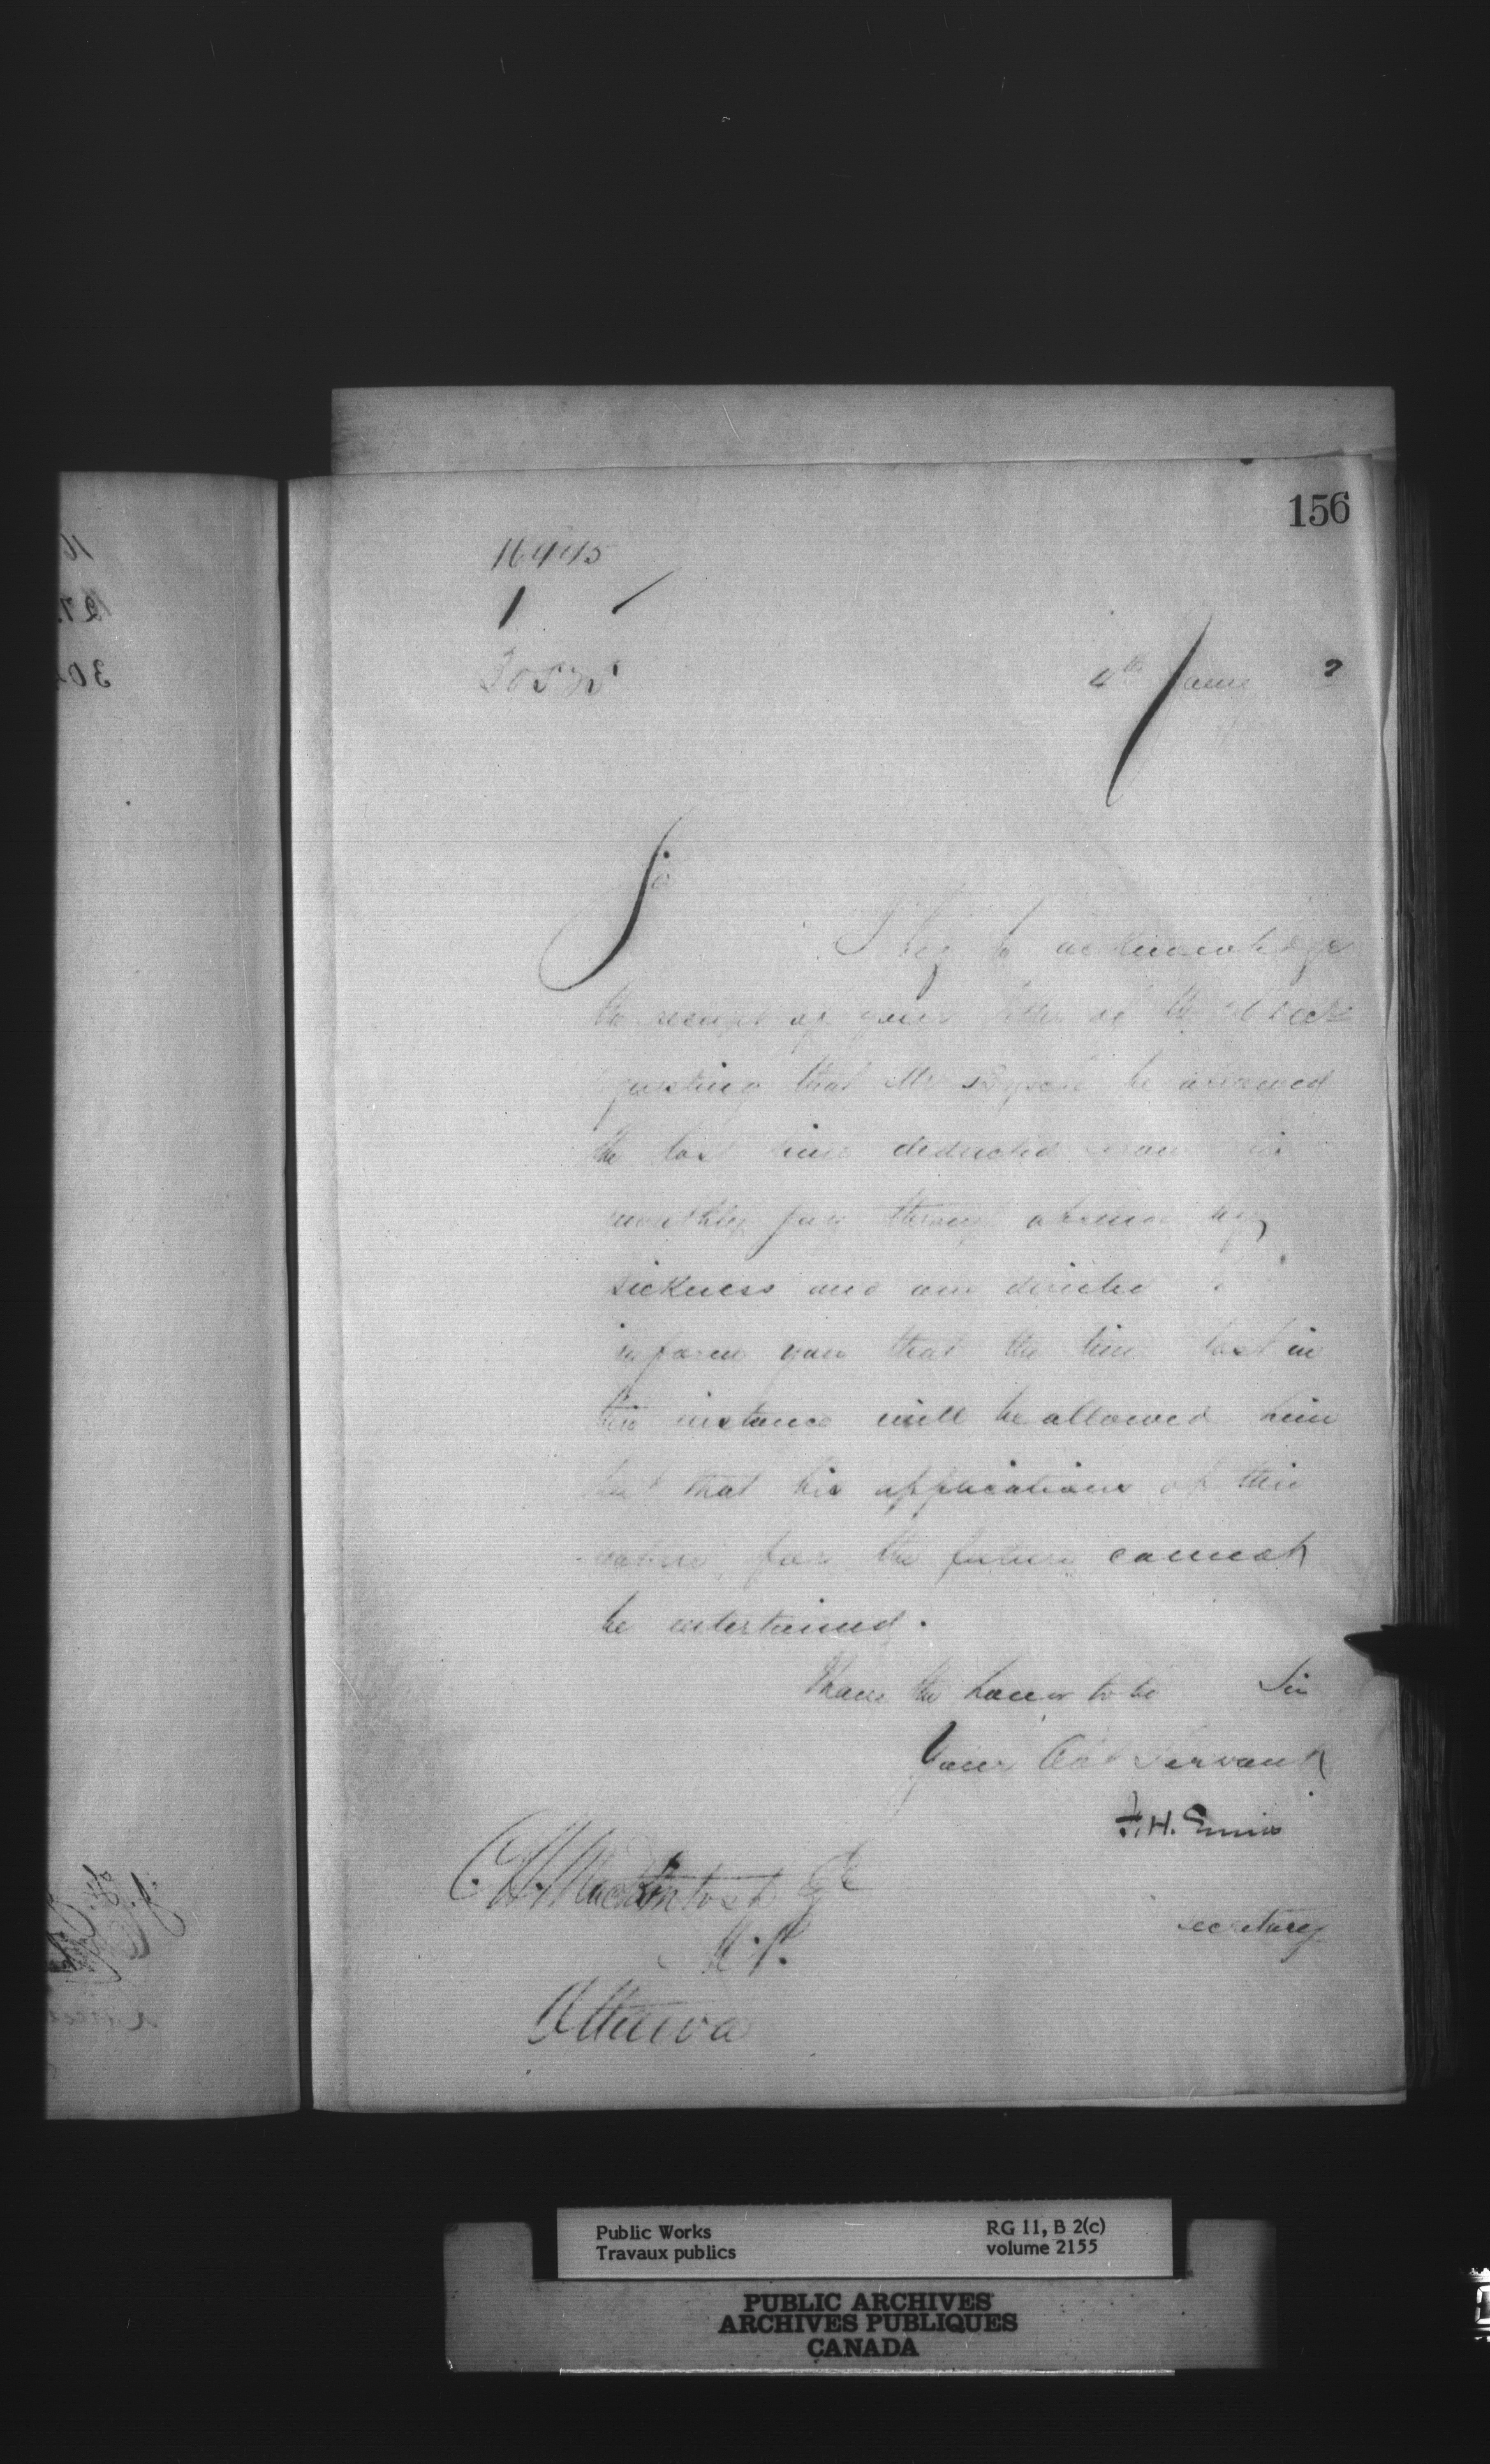 156
16445
1
4th Jany 2
Sir
I beg to acknowledge
the receipt of your letter of the
questing that Mr be allowed
the lost time deducted from his
monthly pay through absence by
sickness and am directed
inform you that the time lost in
this instance will be allowed him
but that his applications of this
nature for the future cannot
be entertained.
I have the honor to be Sir
Your Obt Servant
F. H. Ennis
C. H. Mackintosh Esq
M.P.
Secretary
Ottawa
Public Works
Travaux publics
RG 11, B 2(c)
volume 2155
PUBLIC ARCHIVES
ARCHIVES PUBLIQUES
CANADA